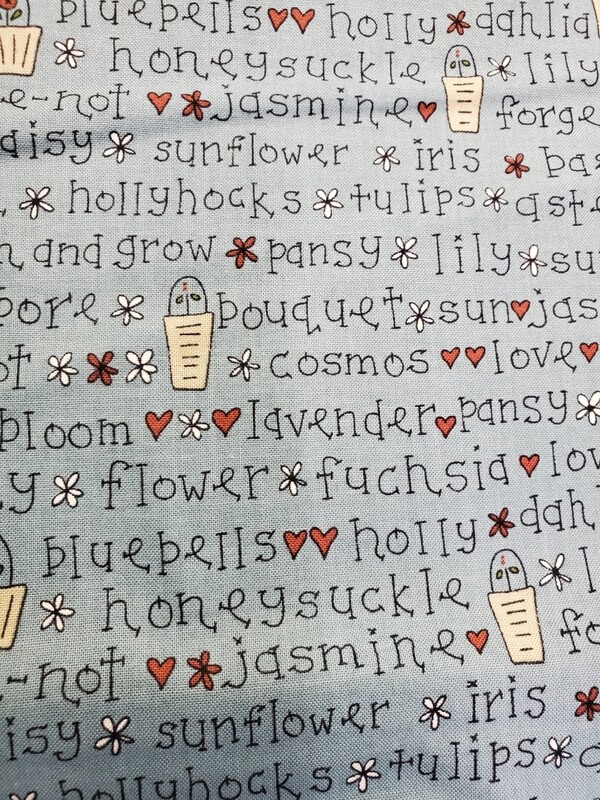 bluebells holly dahlia
honeysuckle lily
e-not jasmine forge
aisy sunflower iris bas
hollyhocks tulips aste
n and grow pansy lily su
bore bouquet sun jas
ot cosmos love
bloom lavender pansy
y flower fuchsia lov
bluebells holly dah
honeysuckle l
-not jasmine fo
isy sunflower iris
hollyhocks tulips a